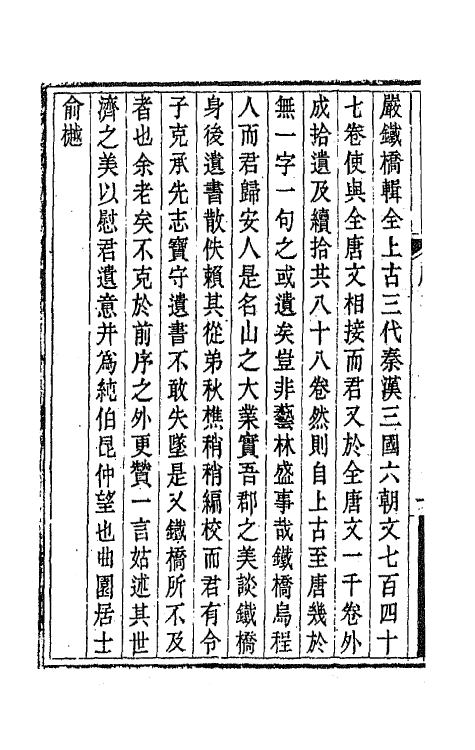 嚴鐵橋輯全上古三代秦漢三國六朝文七百四十
七卷使與全唐文相接而君又於全唐文一千卷外
成拾遺及續拾共八十八卷然則自上古至唐幾於
無一字一句之或遺矣豈非藝林盛事哉鐵橋烏程
人而君歸安人是名山之大業實吾郡之美談鐵橋
身後遺書散佚賴其從弟秋樵稍稍編校而君有令
子克承先志寶守遺書不敢失墜是又鐵橋所不及
者也余老矣不克於前序之外更贊一言姑述其世
濟之美以慰君遺意并為純伯昆仲望也曲園居士
俞樾